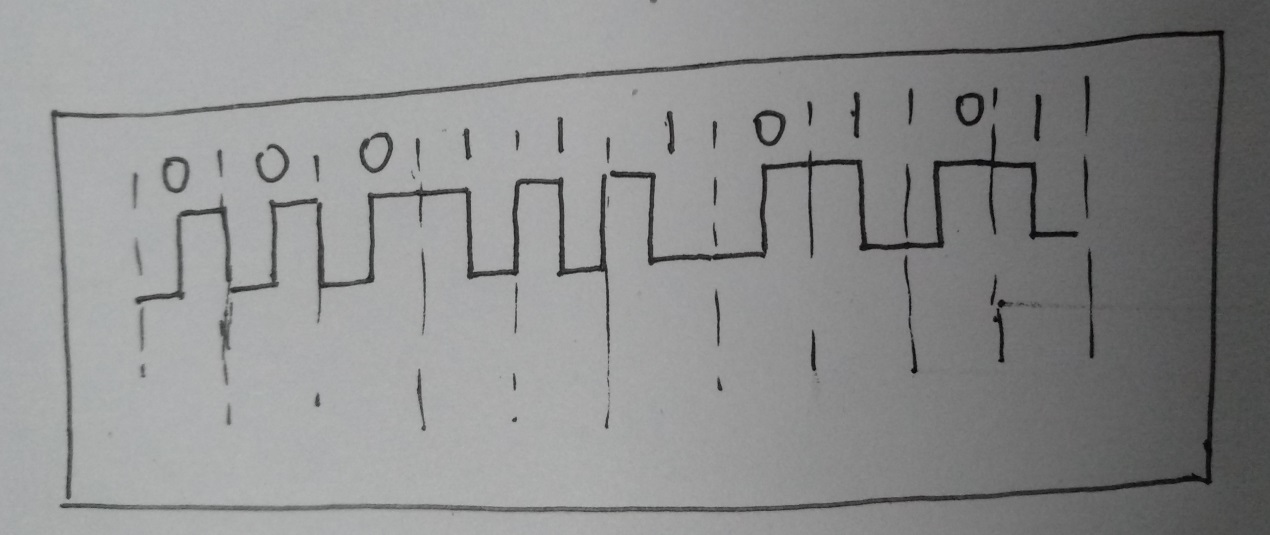 0 0 0 1 1 1 0 1 0 1